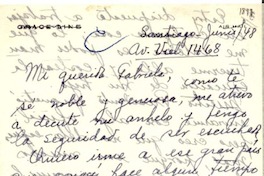 GRACE LINE
Santiago - Junio/48
Av. Vul 1468
Mi querida Gabriela, como eres
se noble y generosa, me atrevo
a decirte mi anhelo y tengo
la seguridad de ser escuchada
Quiero irme a ese gran país
hace algún tiempo